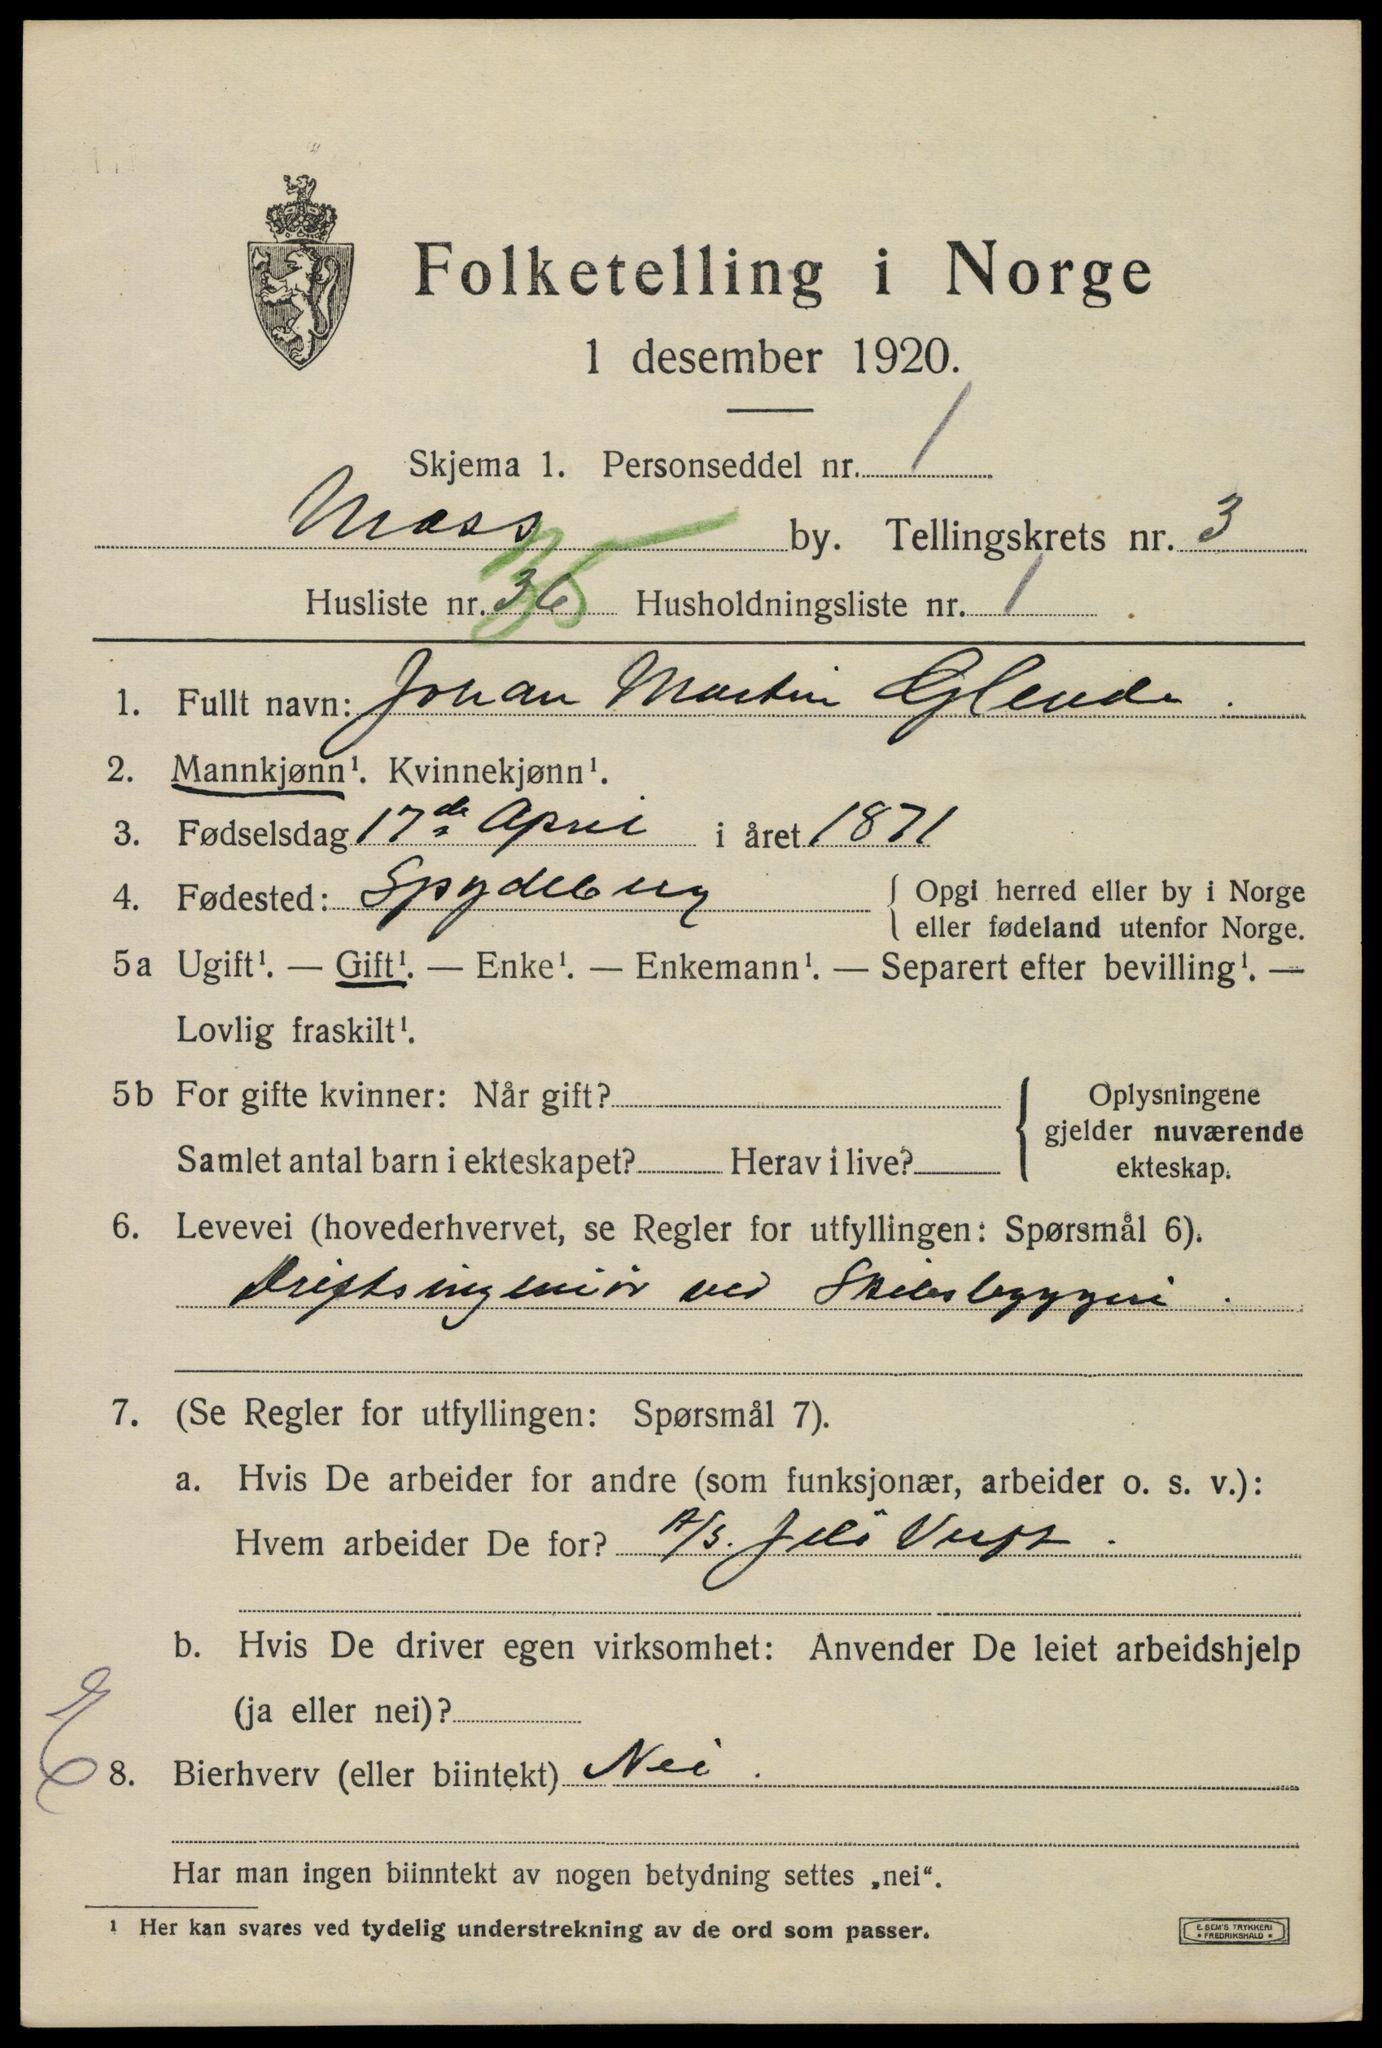 Folketelling i Norge
1 desember 1920.
Skjema 1. Personseddel nr. 1
Moss by. Tellingskrets nr. 3
Husliste nr. 36 35 Husholdningsliste nr. 1
1. Fullt navn: Johan Martin
2. Mannkjønn¹. Kvinnekjønn¹.
3. Fødselsdag 17de April i året 1871
4. Fødested: Spydeberg { Opgi herred eller by i Norge
eller fødeland utenfor Norge.
5a Ugift¹. — Gift¹. — Enke¹. — Enkemann¹. — Separert efter bevilling¹. —
Lovlig fraskilt¹.
5b For gifte kvinner: Når gift? { Oplysningene
gjelder nuværende
Samlet antal barn i ekteskapet? Herav i live? ekteskap.
6. Levevei (hovederhvervet, se Regler for utfyllingen: Spørsmål 6).
Driftsingeniör ved Skibsbyggeri.
7. (Se Regler for utfyllingen: Spørsmål 7).
a. Hvis De arbeider for andre (som funksjonær, arbeider o. s. v.):
Hvem arbeider De for? A/S. Jelö Verft.
b. Hvis De driver egen virksomhet: Anvender De leiet arbeidshjelp
(ja eller nei)?
E
8. Bierhverv (eller biintekt) Nei.
Har man ingen biinntekt av nogen betydning settes „nei“.
¹ Her kan svares ved tydelig understrekning av de ord som passer.
E. SEM'S TRYKKERI
* FREDRIKSHALD *